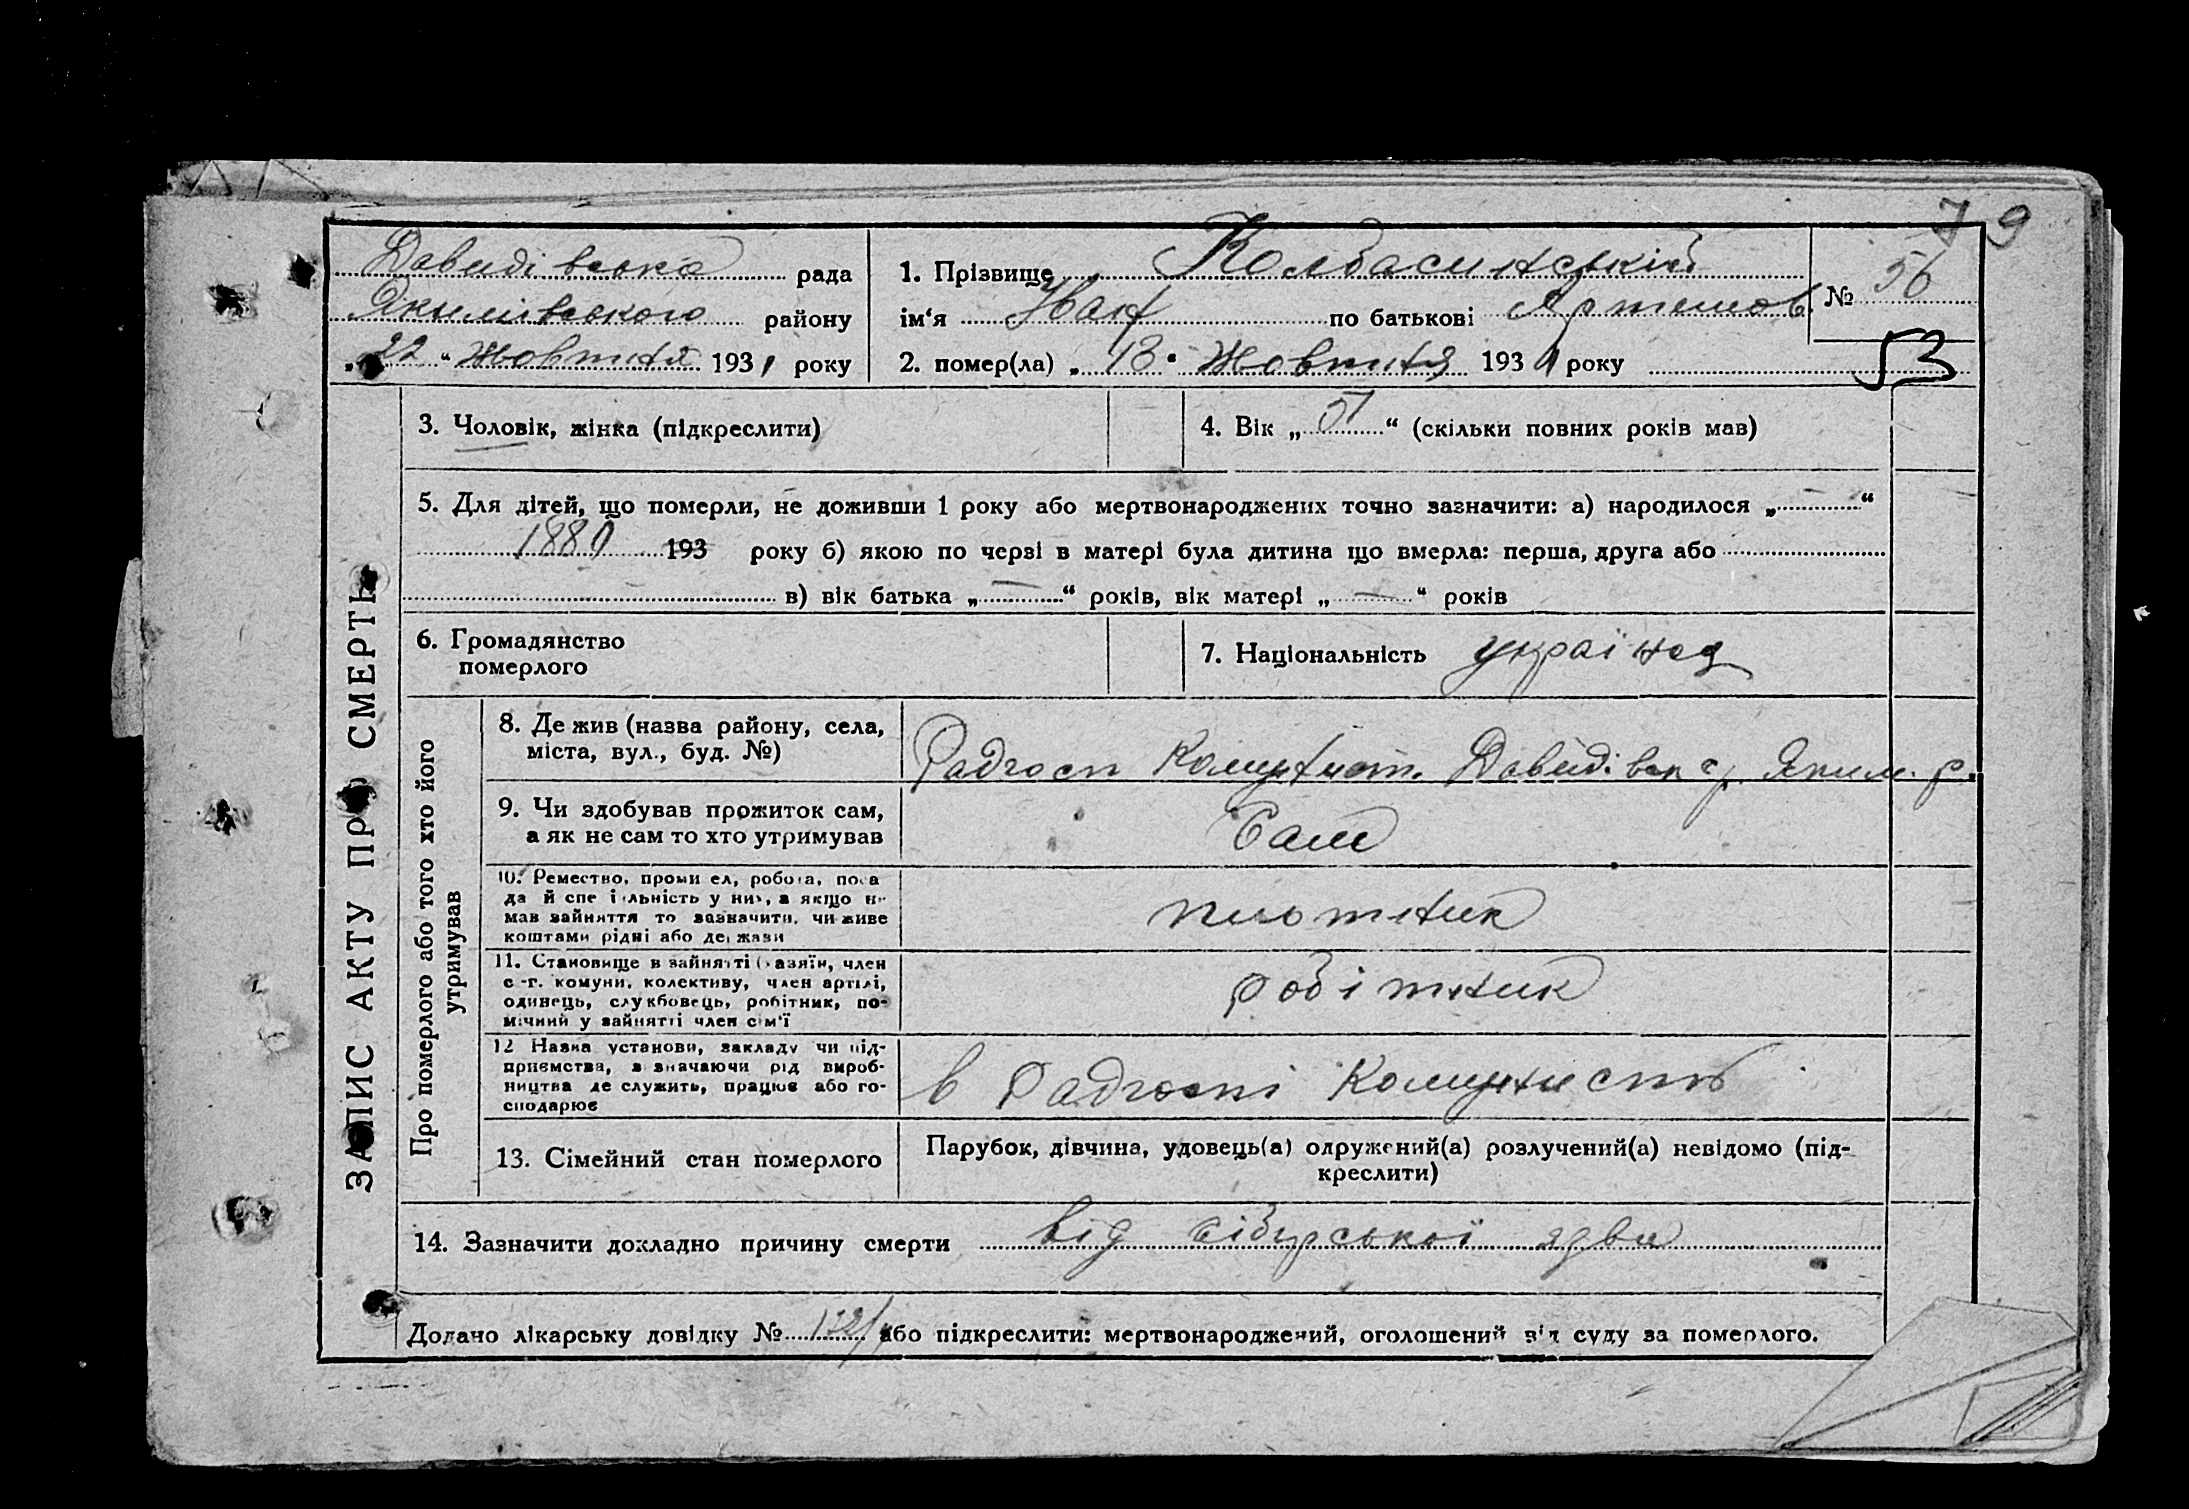 79
Давидівська рада
Якимівського району
„22“ Жовтня 1931 року
1. Прізвище Колбасинський
ім‘я Іван по батькові Артемов.
№ 56
2. помер(ла) „13“ Жовтня 1931 року
53
ЗАПИС АКТУ ПРО СМЕРТЬ
3. Чоловік, жінка (підкреслити)
4. Вік „51“ (скільки повних років мав)
5. Для дітей, що померли, не доживши 1 року або мертвонароджених точно зазначити: а) народилося „—“
1880 193 року б) якою по черзі в матері була дитина що вмерла: перша, друга або
в) вік батька „—“ років, вік матері „—“ років
6. Громадянство
померлого
7. Національність українец
Про померлого або того хто його
утримував
8. Де жив (назва району, села,
міста, вул., буд. №)
Радгосп Комуніст. Давидівск с/р. Яким. р.
9. Чи здобував прожиток сам,
а як не сам то хто утримував
Сам
10. Ремество, промисел, робота, поса
да й спеціяльність у них, а якщо не
мав зайняття то зазначити, чи живе
коштами рідні або держави
плотник
11. Становище в зайнятті (хазяїн, член
с.-г. комуни, колективу, член артілі,
одинець, службовець, робітник, по-
мічний у зайнятті член сім‘ї
робітник
12 Назва установи, закладу чи під-
приємства, зазначаючи рід вироб-
ництва де служить, працює або го-
сподарює
в Радгоспі Комунистъ
13. Сімейний стан померлого
Парубок, дівчина, удовець(а) одружений(а) розлучений(а) невідомо (під-
креслити)
14. Зазначити докладно причину смерти від сібирської язви
Додано лікарську довідку № або підкреслити: мертвонароджений, оголошений від суду за померлого.